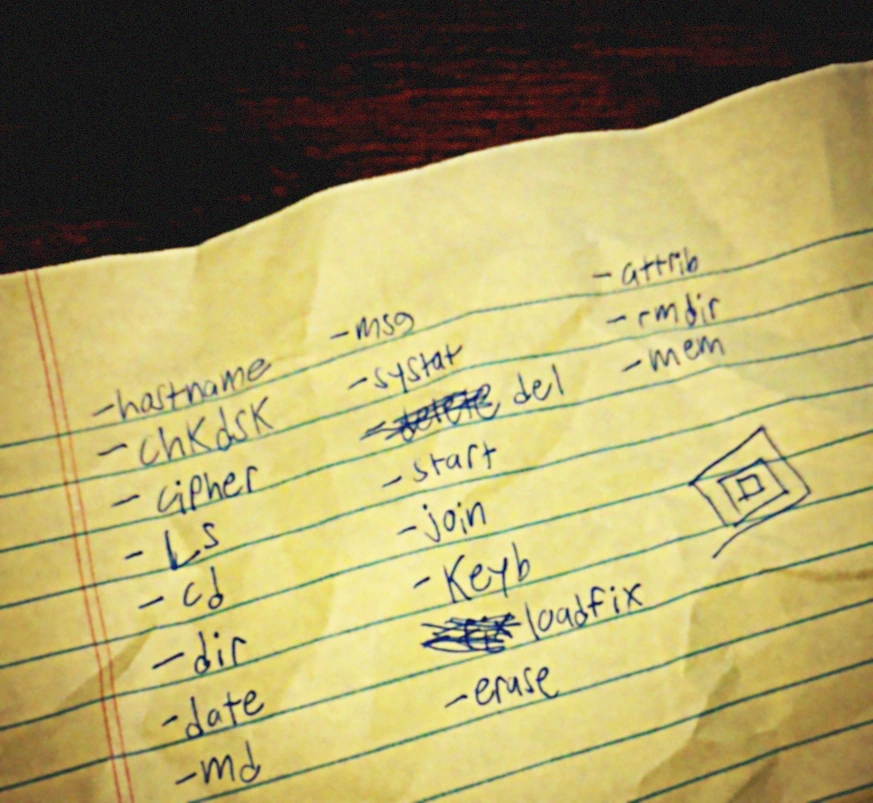 -hostname
- chKdsK
- cipher
- Ls
- cd
- dir
- date
- md
- msg
- systat
- delete del
- start
- join
- Keyb
loadfix
- erase
- attrib
- rmdir
- mem